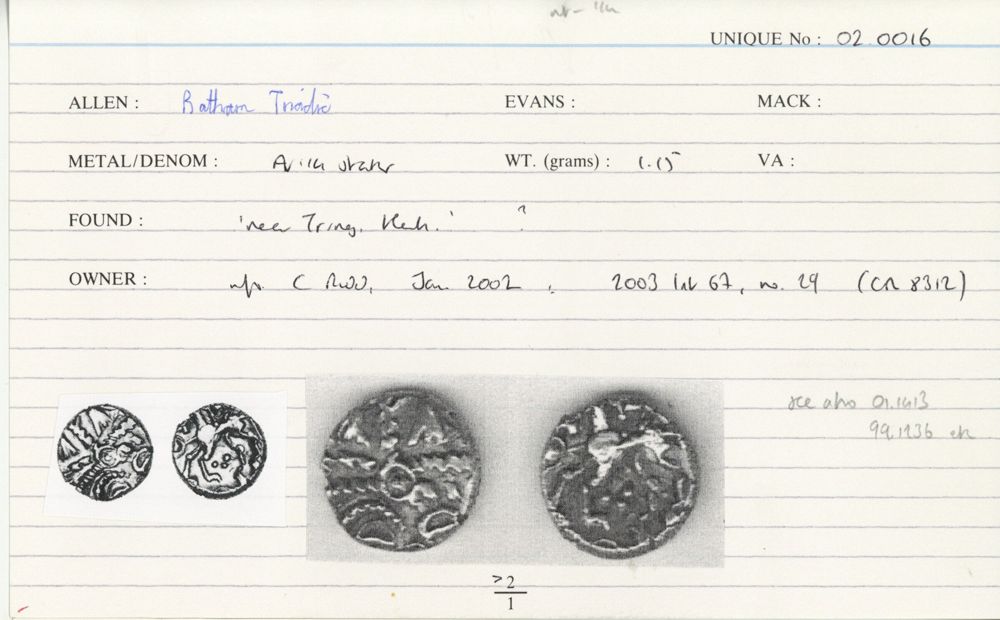 UNIQUE No : 02.0016
ALLEN :
EVANS :
MACK :
METAL/DENOM :
WT. (grams) : 1.15
VA :
FOUND : 'near Tring, Herts.' ?
OWNER : C Rudd, Jan 2002, 2003 list 67, no. 29 (CR 8312)
see also 01.1413
99.1136 etc
>2
1